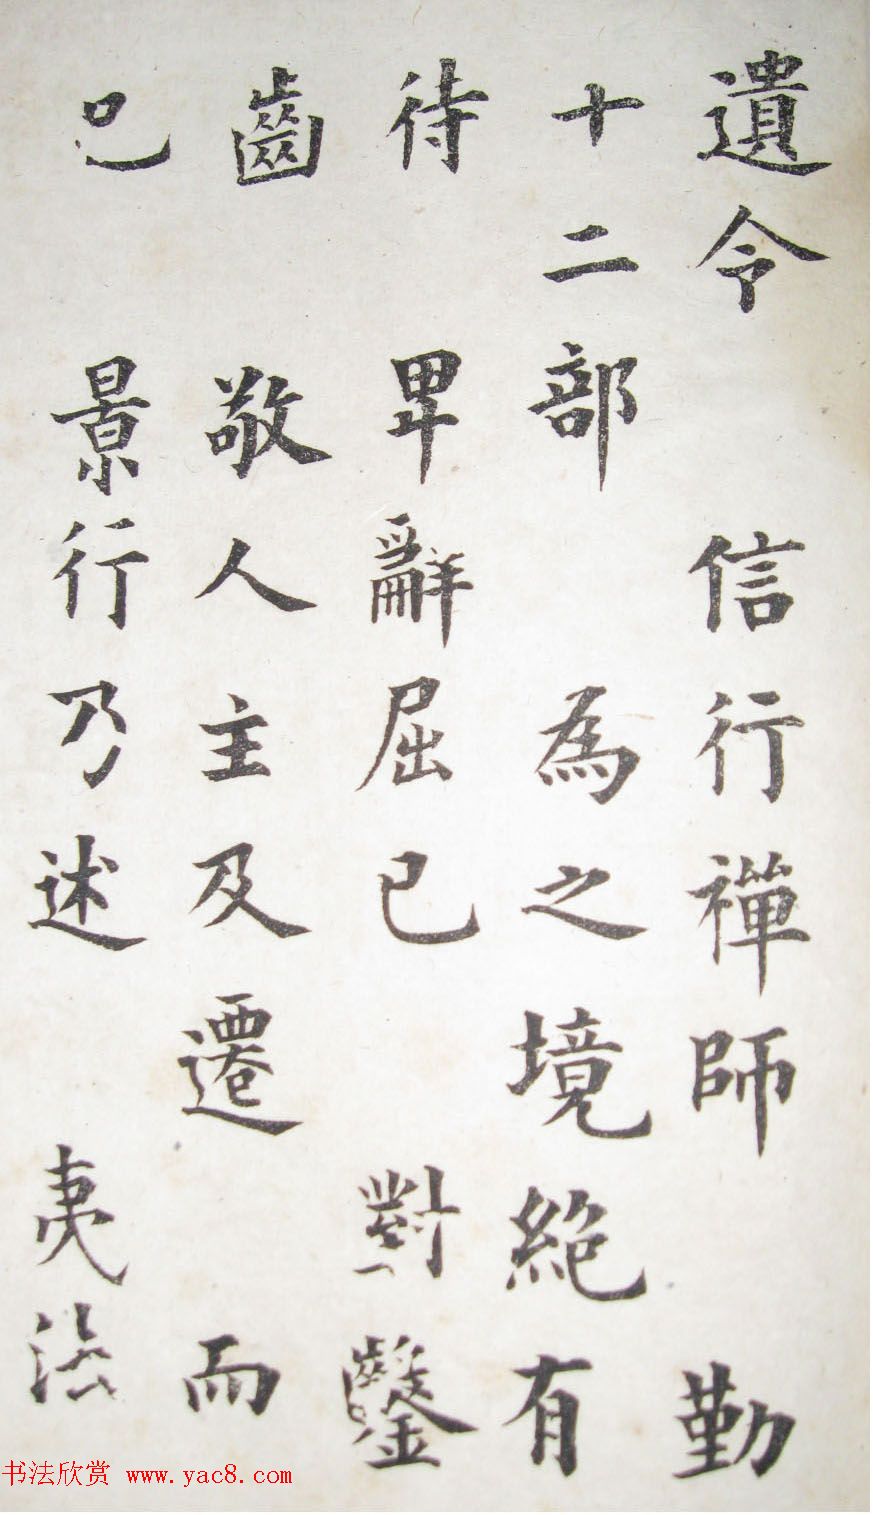 遺令 信行禪師 勤
十二部 為之境絕有
待 畢辭屈已 對鑿
齒 敬人主及遷 而
已 景行乃述 夷法
书法欣赏 www.yac8.com